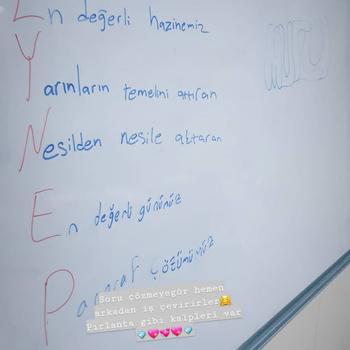 En değerli hazinemiz
Yarınların temelini attıran
Nesilden nesile aktaran
En değerli gününüz
Paragraf çözümümüz
Soru çözmeyegör hemen
arkadan iş çevirirler🥰
Pırlanta gibi kalpleri var
💎💖💖💖💎